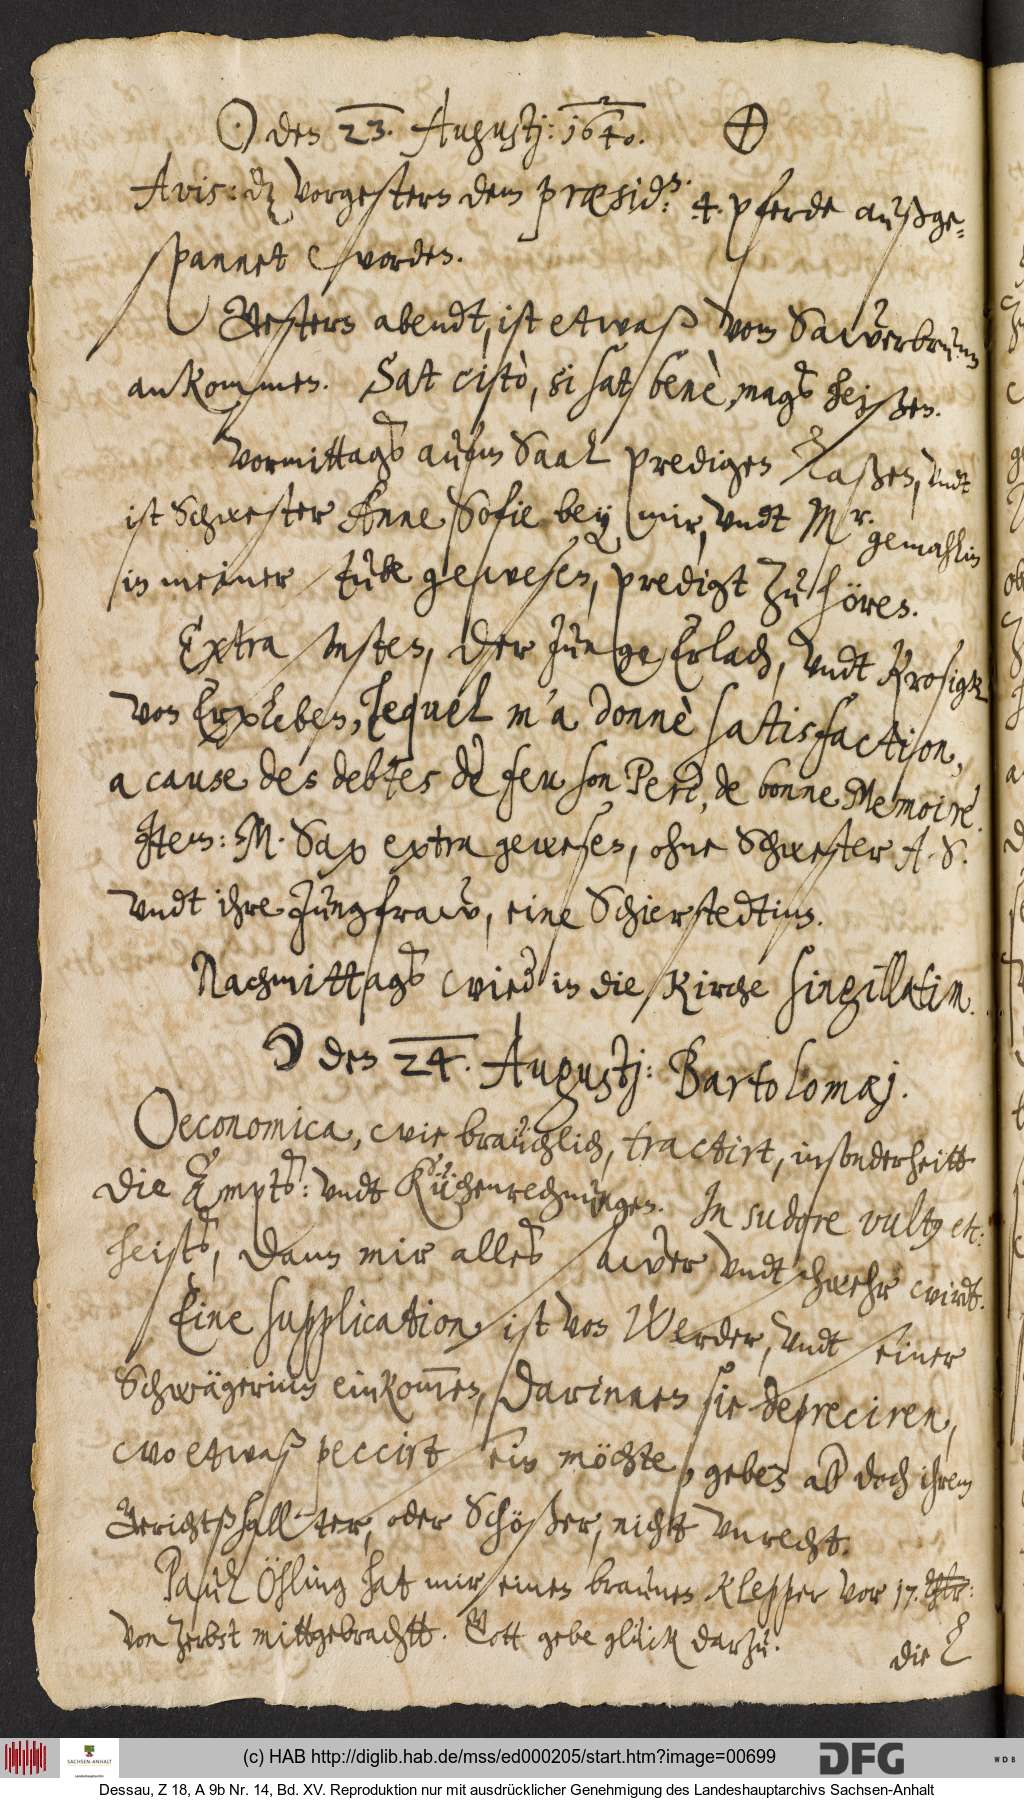 ☉ den 23. Augustj: 1640. ⊕
Avis: dz vorgestern dem præsid: 4. pferde außge-
spannet worden.
Gestern abendt, ist etwaß vom Sawerbrunn
ankommen. Sat citò, si sat benè, mags heißen.
Vormittags aufm Saal predigen laßen, undt
ist Schwester Anne Sofie bey mir, undt Mr. gemahlin
in meiner stube gewesen, predigt zu hören.
Extra zu Mittag, der Junge Erlach, undt Krosigk
von Erxleben, lequel m'a donnè satisfaction,
a cause des debtes de feu son Pere, de bonne Memoire.
Item: M. Sax extra gewesen, ohne Schwester A. S.
undt ihre Jungfraw, eine Schierstedtinn.
Nachmittags wieder in die Kirche singillatim.
☽ den 24. Augustj: Bartolomæj.
Oeconomica, wie braüchlich, tractirt, insonderheitt
die Ampts: undt Küchenrechnungen. In sudore vultus etc:
heists, dann mir alles sawer undt schwehr wirdt.
Eine supplication ist von Werder, undt seiner
Schwägerinn einkommen, darinnen sie depreciren,
wo etwaß peccirt sein möchte, geben aber doch ihrem
Gerichtßhallter, oder Schößer, nichtt unrecht.
Paul Öhling hat mir einen braunen Klepper vor 17. Thlr:
von Zerbst mittgebrachtt. Gott gebe glück darzu.
die
(c) HAB http://diglib.hab.de/mss/ed000205/start.htm?image=00699
SACHSEN-ANHALT
DFG
WDB
Dessau, Z 18, A 9b Nr. 14, Bd. XV. Reproduktion nur mit ausdrücklicher Genehmigung des Landeshauptarchivs Sachsen-Anhalt